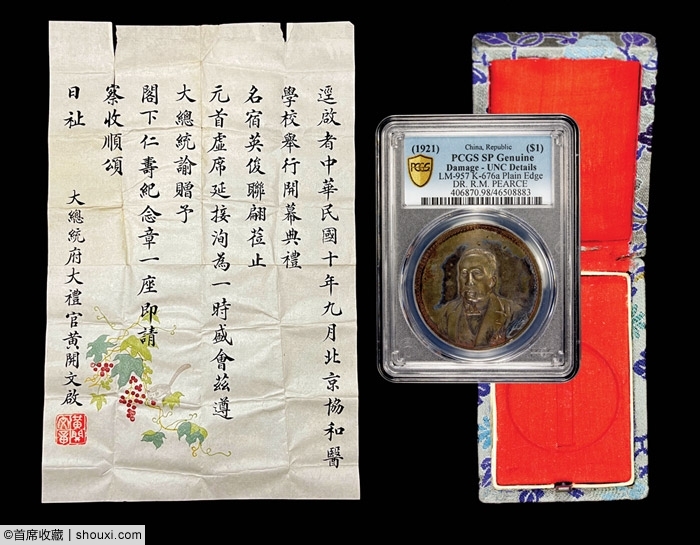 逕啟者中華民國十年九月北京協和醫
學校舉行開幕典禮
名宿英俊聯翩蒞止
元首虛席延接洵為一時盛會茲遵
大總統諭贈予
閣下仁壽紀念章一座即請
察收順頌
日祉
大總統府大禮官黃開文啟
(1921) China, Republic ($1)
PCGS SP Genuine
Damage - UNC Details
LM-957 K-676a Plain Edge
DR. R.M. PEARCE
406870.98/46508883
PCGS
©首席收藏 | shouxi.com